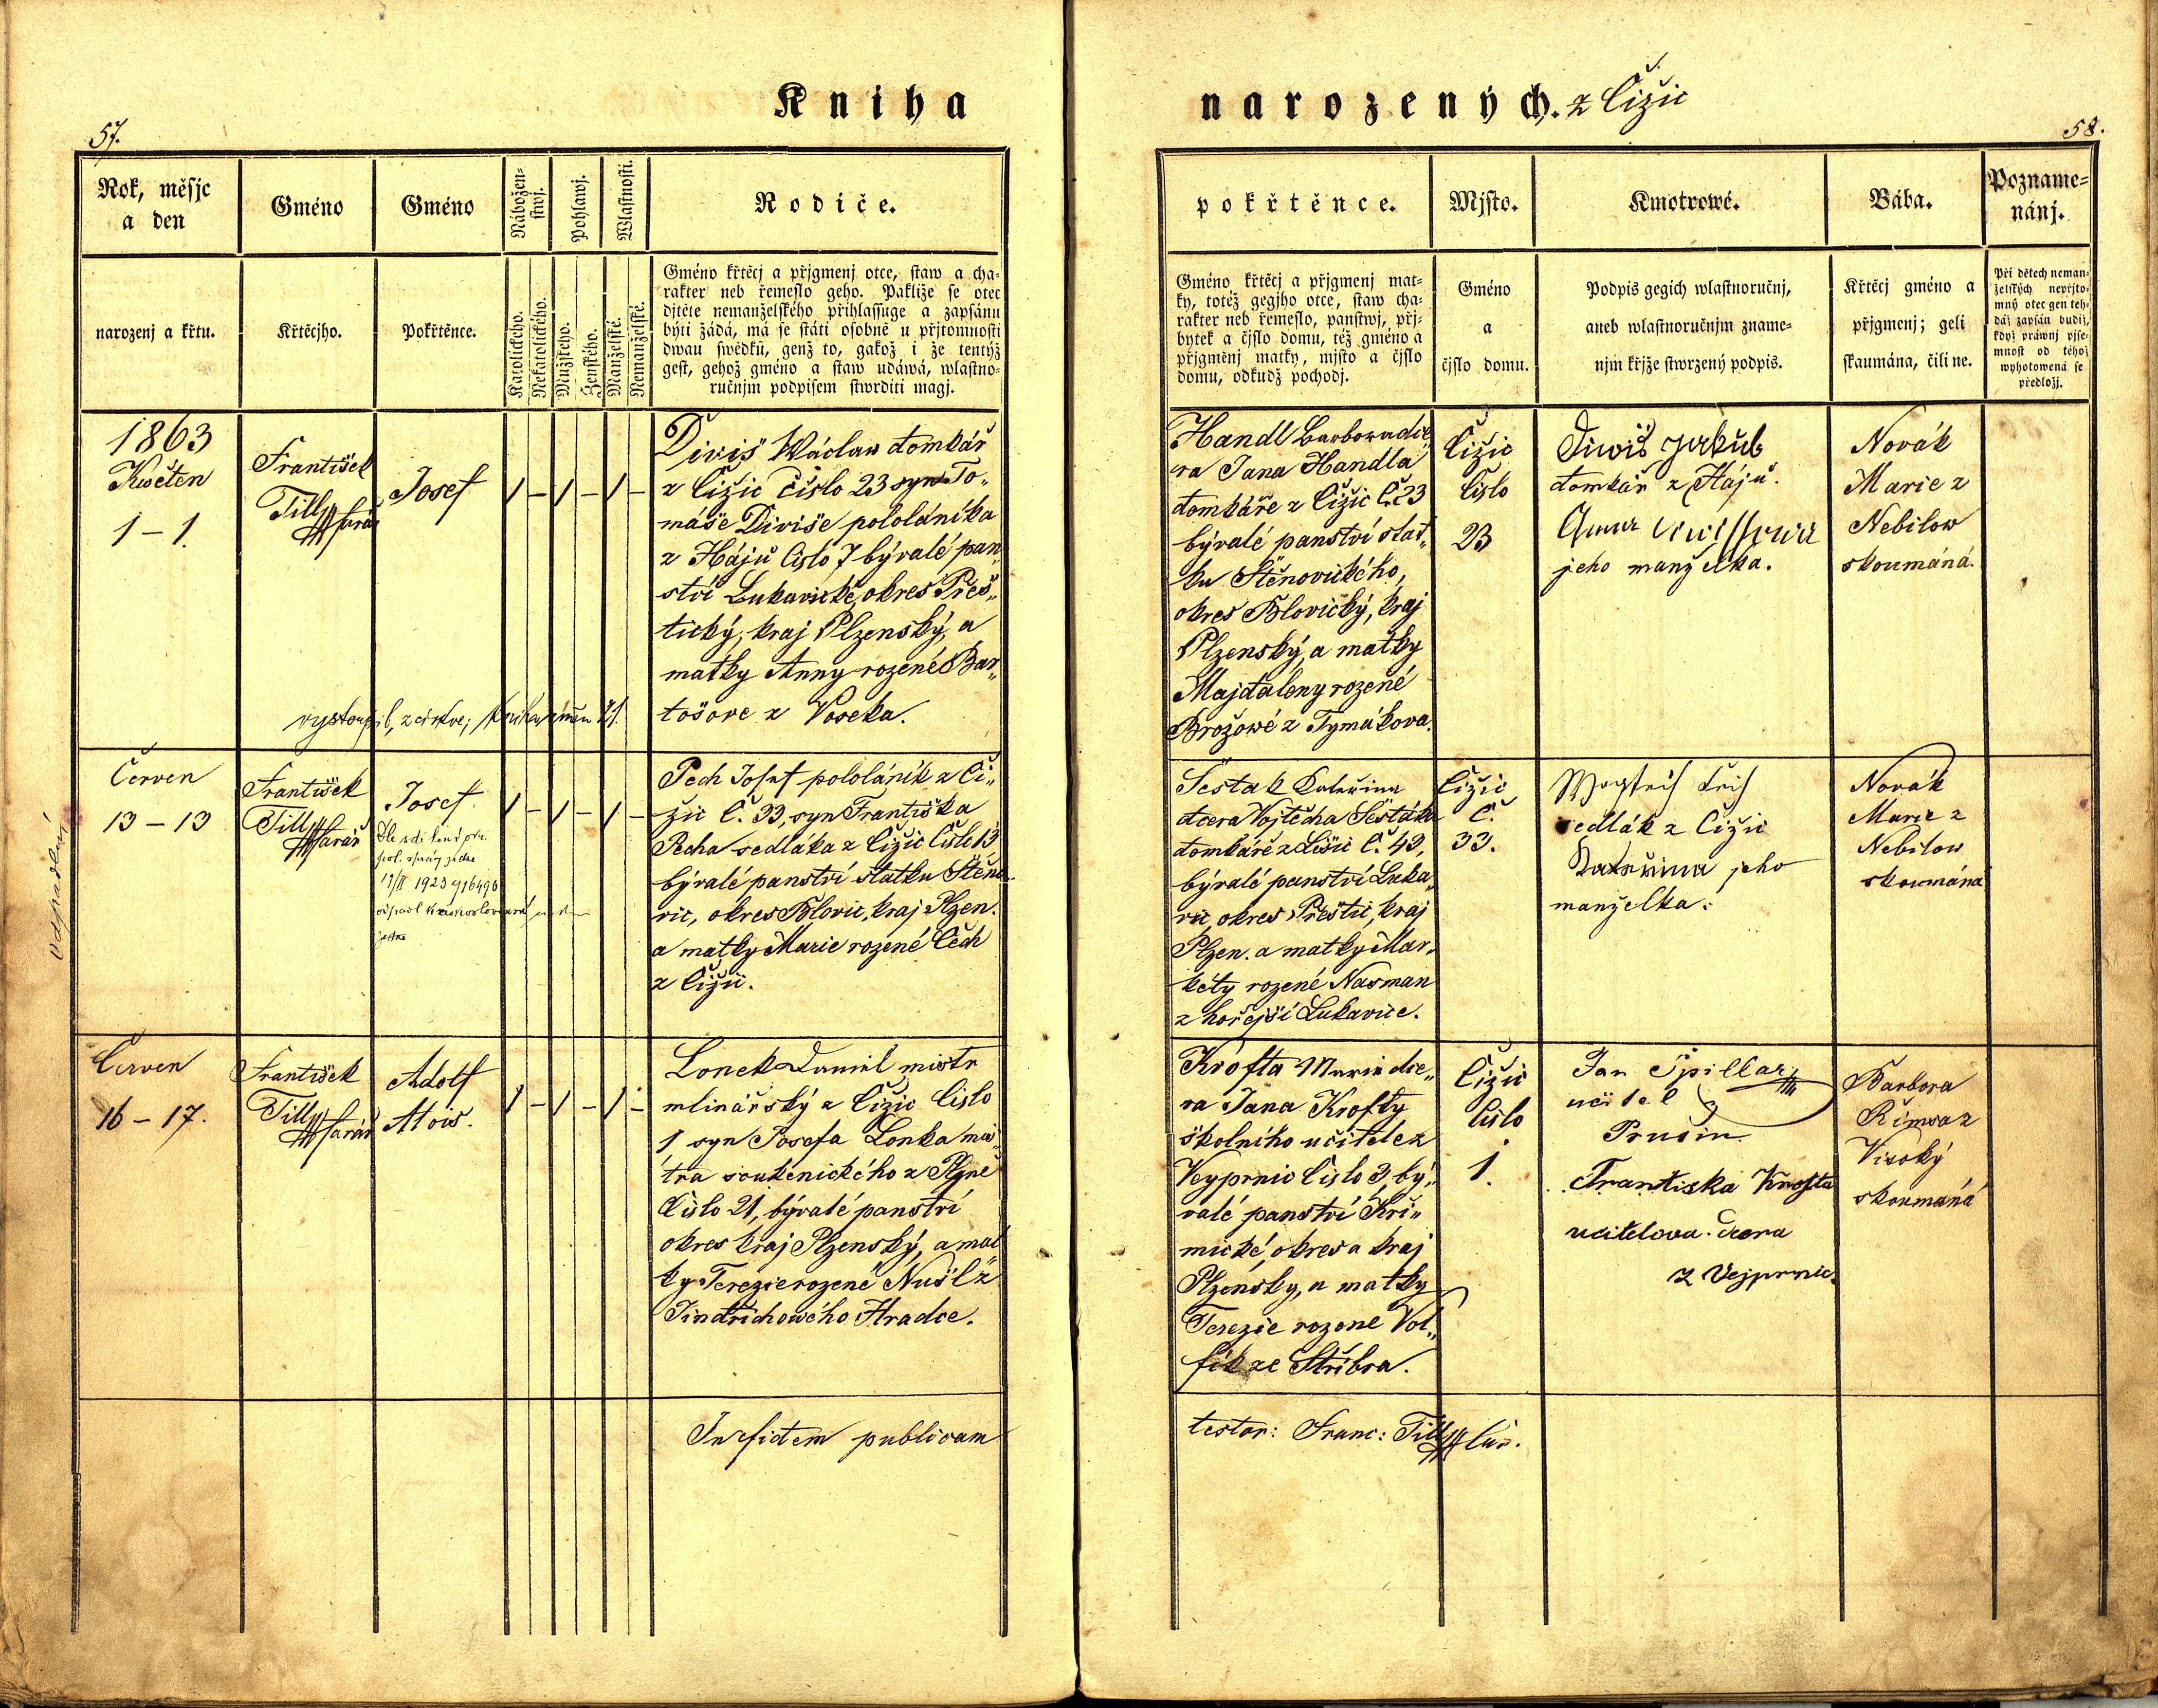 Kniha
narozených. z Čižic
57.
58.
Rok, měsjc
a den
Gméno
Gméno
Nábožen-
stwj.
Pohlawj.
Wlastnosti.
Rodiče.
narozenj a křtu.
Křtěcjho.
Pokřtěnce.
Katolického.
Nekatolického.
Mužského.
Ženského.
Manželské.
Nemanželské.
Gméno křtěcj a přjgmenj otce, staw a cha-
rakter neb řemeslo geho. Pakliže se otec
djtěte nemanželského přihlassuge a zapsánu
býti žádá, má se státi osobně u přjtomnosti
dwau swědků, genž to, gakož i že tentýž
gest, gehož gméno a staw udáwá, wlastno-
ručnjm podpisem stwrditi magj.
pokřtěnce.
Mjsto.
Kmotrowé.
Bába.
Pozname-
nánj.
Gméno křtěcj a přjgmenj mat-
ky, totéž gegjho otce, staw cha-
rakter neb řemeslo, panstwj, přj-
bytek a čjslo domu, též gméno a
přjgměnj matky, mjsto a čjslo
domu, odkudž pochodj.
Gméno
a
čjslo domu.
Podpis gegich wlastnoručnj,
aneb wlastnoručnjm zname-
njm křjže stwrzený podpis.
Křtěcj gméno a
přjgmenj; geli
skaumána, čili ne.
Při dětech neman-
želských nepřjto-
mný otec gen teh-
dáž zapsán budiž,
když práwnj pjse-
mnost od téhož
wyhotowená se
předložj.
1863
Květen
1 – 1.
František
Till farář
Josef
1 – 1 – 1 –
Diviš Wáclaw domkář
z Čižic Číslo 23 syn To„
máše Diviše pololáníka
z Hájů Číslo 7 bývalé pan„
ství Lukavické, okres Přeš„
tický, kraj Plzenský, a
matky Anny rozené Bar„
tošove z Voseka.
vystoupil z církve;
Handl Barbora dce„
ra Jana Handla
domkáře z Čižic Č. 23
bývalé panství stat„
ku Štěnovického,
okres Blovický, kraj
Plzenský, a matky
Majdaleny rozené
Brožowé z Tymákova.
Čižic
Číslo
23
Diwiš Jakub
domkář z Hájů.
Anna
jeho manželka.
Novák
Marie z
Nebilow
skoumáná.
odpadlík
Červen
13 – 13
František
Till farář
Josef.
1 – 1 – 1 –
1923
Pech Josef pololáník z Či„
žic Č. 33, syn Františka
Pecha sedláka z Čižic Číslo 13
bývalé panství statku Štěno„
vic, okres Blovic, kraj Plzen.
a matky Marie rozené Čech
z Čižic.
Šestak Kateřina
dcera Vojtěcha Šestáka
domkáře z Č. 43,
bývalé panství Luka„
vic, okres Přeštic, kraj
Plzen. a matky Mar„
kéty rozené Nasman
z hořejší Lukavice.
Čižic
Č.
33.
sedlák z Čižic
Kateřina jeho
manželka.
Novák
Marie z
Nebilow
skoumána
Červen
16 – 17.
František
Till farář
Adolf
Alois.
1 – 1 – 1 –
Lonek Daniel mistr
mlinářský z Čižic Číslo
1 syn Josefa Lonka mis„
tra soukenického z Plzně
Číslo 21, bývalé panství
okres kraj Plzenský, a mat„
ky Terezie rozené Nušl z
Jindřichowého Hradce.
Krofta Marie dce„
ra Jana Krofty
školního učitele z
Veyprnic Číslo 3, bý„
valé panství Kři„
mické, okres a kraj
Plzenský, a matky
Terezie rozené Vol„
fík ze Stříbra.
Čižic
Číslo
1.
Jan Špillar
učitel z
Prusin
Frantiska Krofta
ucitelova dcera
z Vejprnic.
Barbora
Římsa z
Visoký
skoumáná
In fidem publicam
testor: Franc: Till